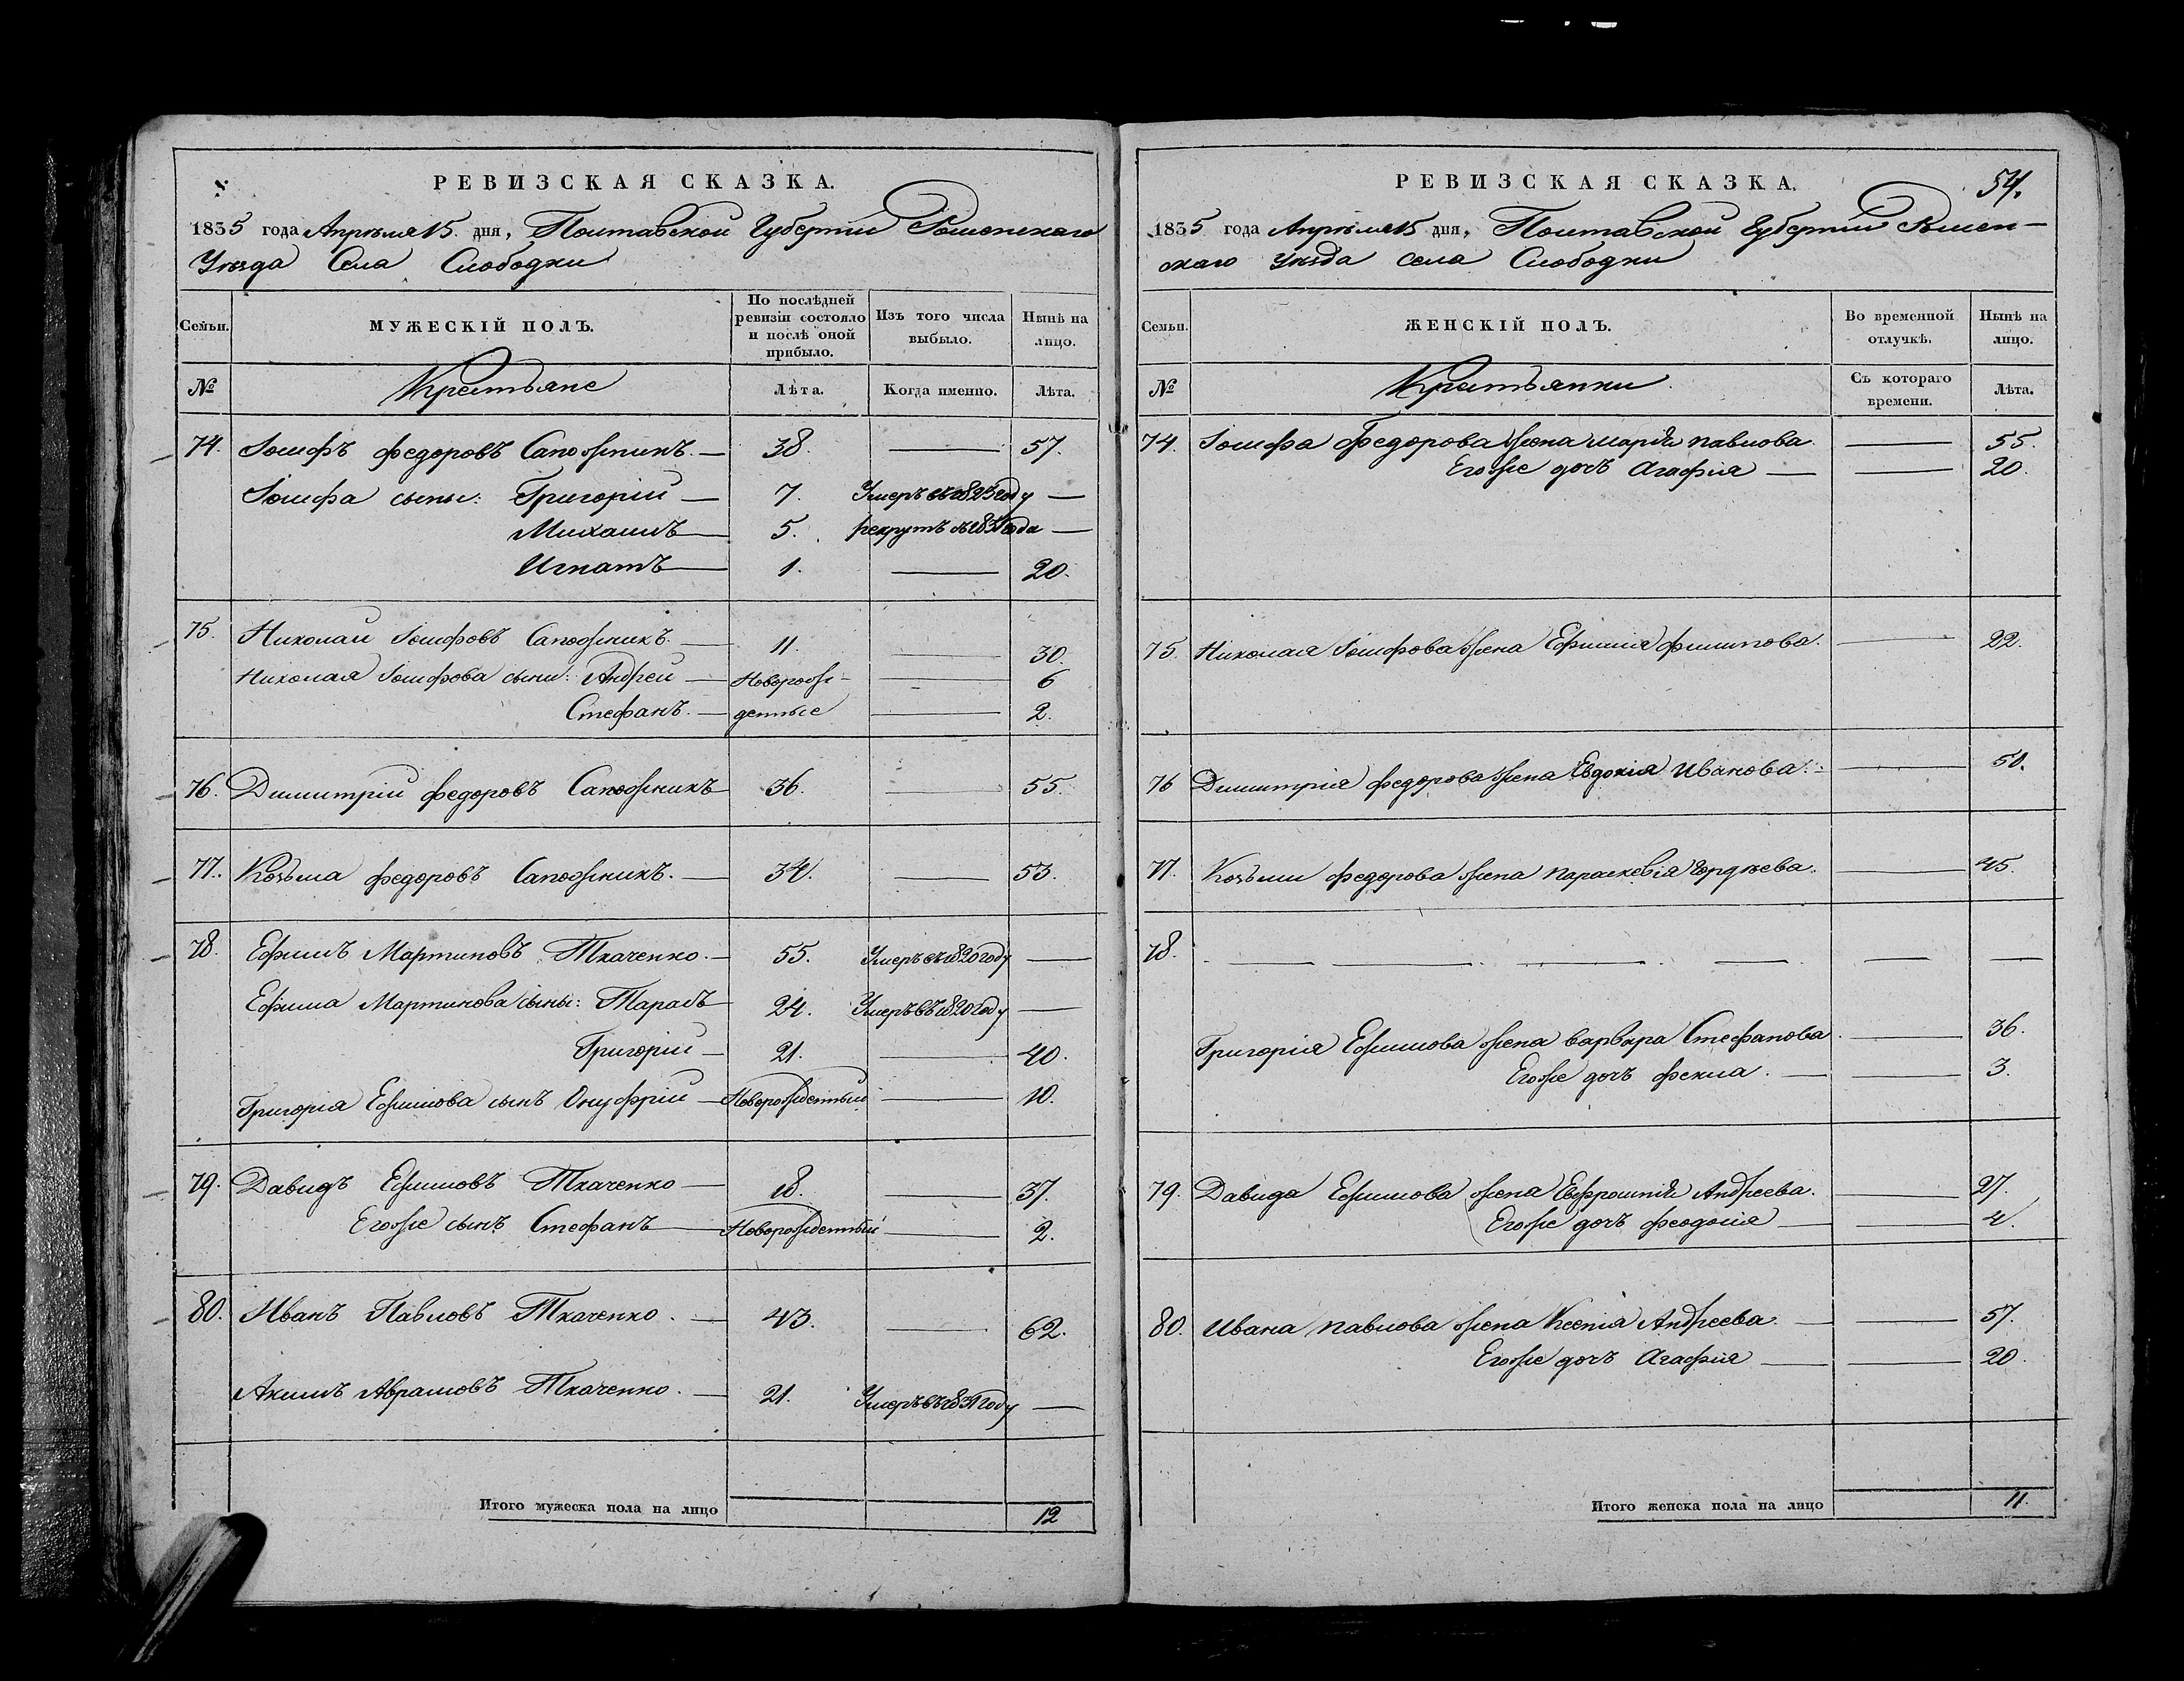 РЕВИЗСКАЯ СКАЗКА.
1835 года Апрѣля 15 дня, Полтавской Губерніи Роменскаго
Уѣзда Села Слободки
Семьи.
МУЖЕСКІЙ ПОЛЪ.
По послѣдней ревизіи состояло и послѣ оной прибыло.
Изъ того числа выбыло.
Нынѣ на лицо.
№ Крестьяне Лѣта. Когда именно. Лѣта.
74. Іосифъ Федоровъ Сапожникъ. 38. 57.
Іосифа сыны: Григорій 7. Умеръ въ 1823 году
Михаилъ 5. рекрутъ 1831 года
Игнатъ 1. 20.
75. Николай Іосифовъ Сапожникъ. 11. 30.
Николая Іосифова сыны: Андрей Новорож- 6
Стефанъ. денные 2.
76. Димитрій Федоровъ Сапожникъ 36. 55.
77. Козьма Федоровъ Сапожникъ. 34. 53.
78. Ефимъ Мартиновъ Ткаченко. 55. Умеръ въ 1820 году
Ефима Мартинова сыны: Тарасъ 24. Умеръ въ 1820 году
Григорій 21. 40.
Григорія Ефимова сынъ Онуфрій Новорожденный 10.
79. Давидъ Ефимовъ Ткаченко 18. 37.
Егоже сынъ Стефанъ Новорожденный 2.
80. Иванъ Павловъ Ткаченко. 43. 62.
Акимъ Аврамовъ Ткаченко. 21. Умеръ въ 1831 году
Итого мужеска пола на лицо 12
РЕВИЗСКАЯ СКАЗКА. 54.
1835 года Апрѣля 15 дня, Полтавской Губерніи Ромен-
скаго Уѣзда Села Слободки
Семьи.
ЖЕНСКІЙ ПОЛЪ.
Во временной отлучкѣ.
Нынѣ на лицо.
№ Крестьянки. Съ котораго времени. Лѣта.
74. Іосифа Федорова жена Марія Павлова. 55.
Егоже дочь Агафія 20.
75. Николая Іосифова жена Ефимія Филипова. 22.
76 Димитрія Федорова жена Евдокія Иванова. 50.
77. Козьми Федорова жена Параскевія Гордѣева. 45.
78.
Григорія Ефимова жена Варвара Стефанова 36.
Егоже дочь Фекла. 3.
79. Давида Ефимова жена Евфросинія Андреева. 27.
Егоже дочь Феодосія 4.
80. Ивана Павлова жена Ксенія Андреева. 57.
Егоже дочь Агафія 20.
Итого женска пола на лицо 11.